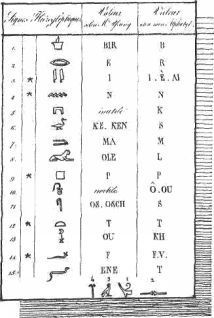 Signes Hiéroglyphiques. Valeur selon Mr. Young. Valeur
1. BIR B
2. E R
3. * I I. È. AI
4. * N N
5. inutile K
6. KE. KEN S
7. MA M
8. OLE L
9. * P P
10. inutile Ô. OU
11. OS. OSCH S
12. * T T
13. OU KH
14. * F F.V.
15. ENE T
4 3 2 1